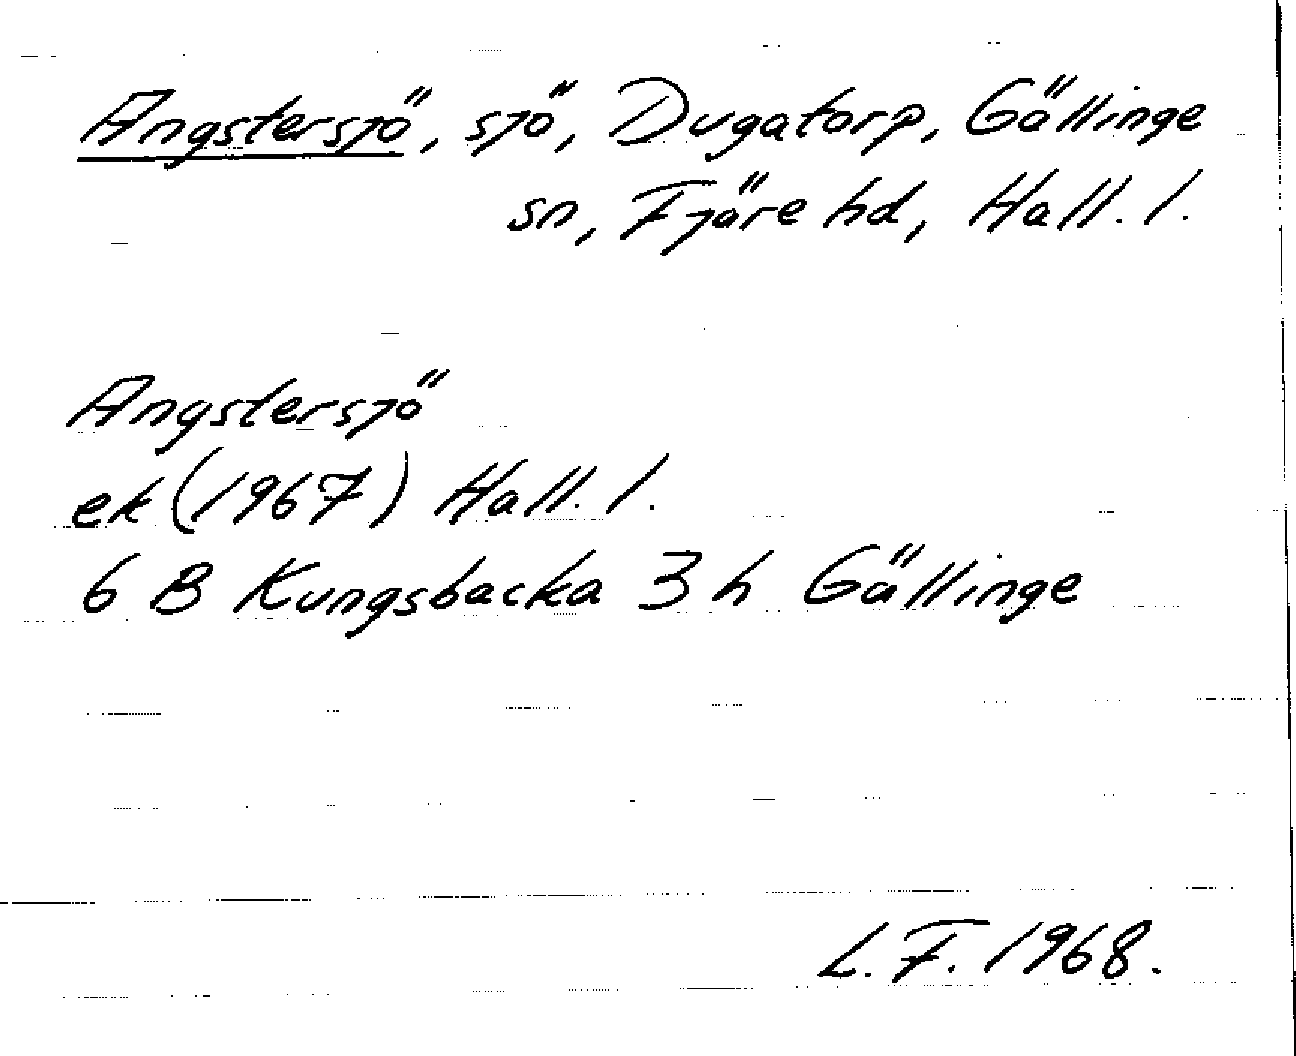 Angstersjö, sjö, Dugatorp, Gällinge
sn, Fjäre hd, Hall. l.
Angstersjö
ek (1967) Hall. l.
6 B Kungsbacka 3 h Gällinge
L. F. 1968.